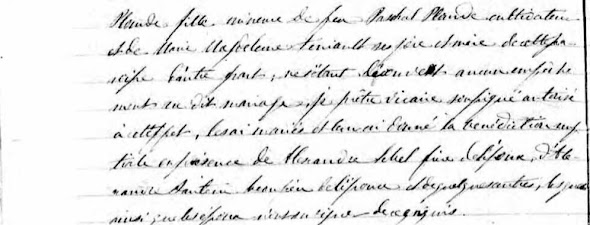 Plourde fille mineure de feu Paschal Plourde cultivateur
et de Marie Magdeleine Terriault ses père et mère de cette pa-
roisse d'autre part, ne s'étant découvert aucun empêche
ment au dit mariage, je prêtre vicaire soussigné autorisé
à cet effet, les ai mariés et leur ai donné la bénédiction nup
tiale en présence de Alexandre frère de l'époux, d'Ale
xandre beaufrère de l'épouse et de quelques autres, lesquels
ainsi que les époux n'ont su signer de ce requis.